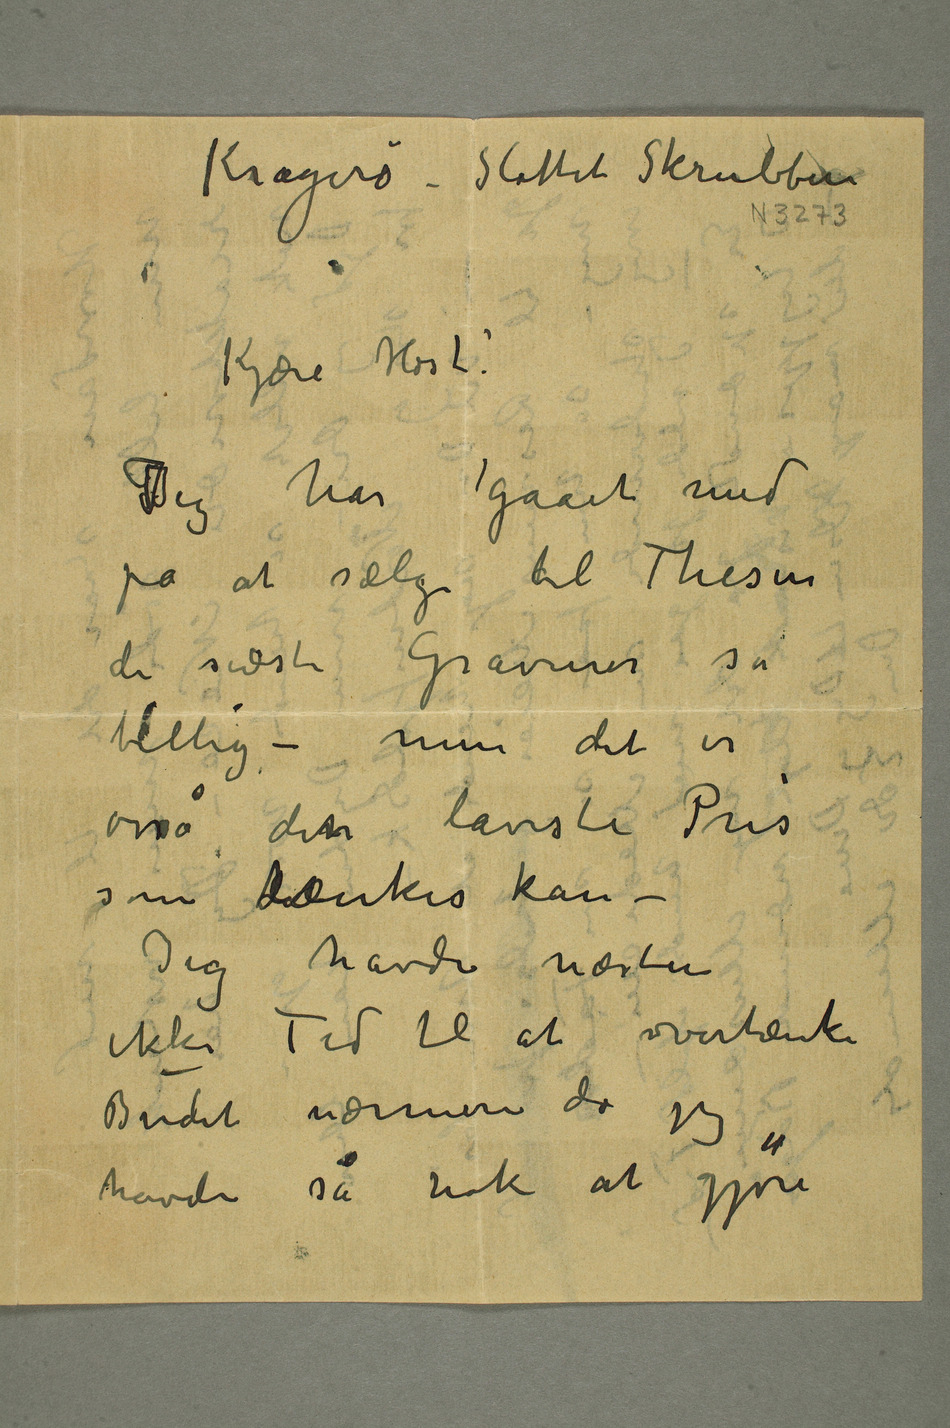 Kragerø – Slottet Skrubben
N 3273
Kjære Høst!
Jeg har gaaet med
på at sælge til Thesen
de sidste Gravurer så
billig – men det er
også den laveste Pris
som tænkes kan –
Jeg havde næsten
ikke Tid til at overtænke
Budet nærmere da jeg
havde så nok at gjøre